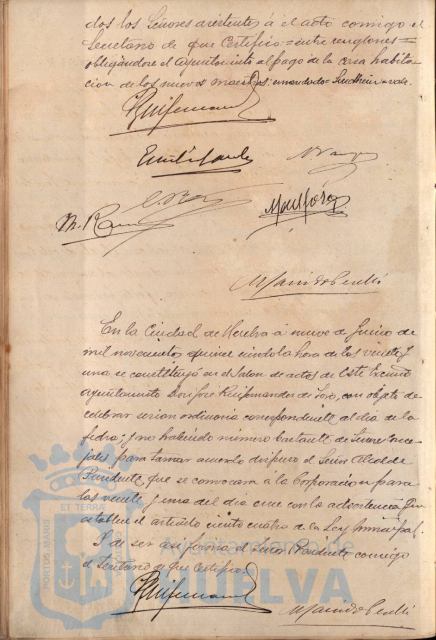 dos los Señores asistentes á el acto comigo el
Secretario de que Certifico = entre renglones =
obligandose el Ayuntamiento al pago de la casa habita-
cion de los nuevos maestros. enmendado = = vale.
En la Ciudad de Huelva á nueve de Junio de
mil novecientos quince siendo la hora de las veinte y
una se constituyó en el Salon de actos de este Excmo
Ayuntamiento Don José Ruifernandez de Toro, con objeto de
celebrar sesion ordinaria correspondiente al dia de la
fecha; y no habiendo número bastante de Señores Conce-
jales para tomar acuerdo dispuso el Señor Alcalde
Presidente que se convocara á la Corporacion para
las veinte y una del dia once con la advertencia que
establece el articulo ciento cuatro de la Ley Municipal.
Y de ser asi firma el Señor Presidente comigo
el Secretario de que Certifico.
PORTUS MARIS ET TERRAE
Ayuntamiento de
HUELVA